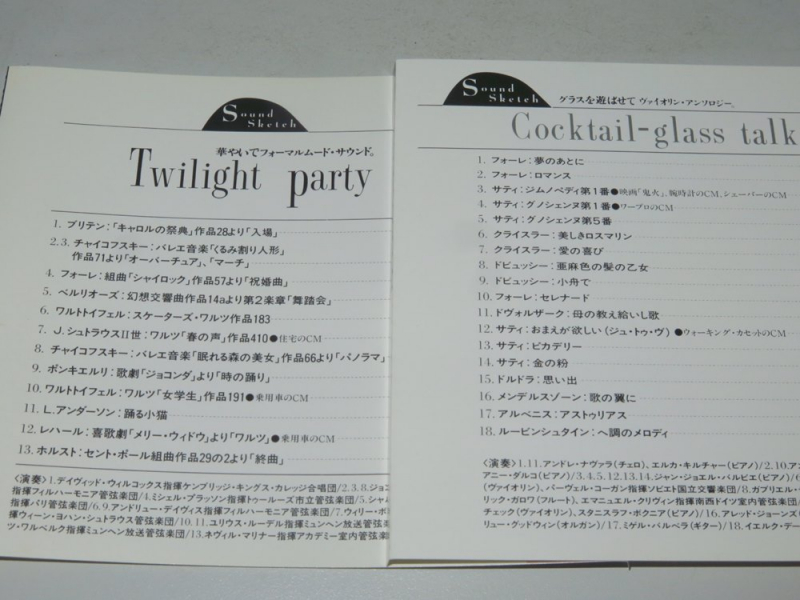 Sound
Sketch
華やいでフォーマルムード・サウンド。
Twilight party
1. ブリテン:「キャロルの祭典」作品28より「入場」
2.3. チャイコフスキー:バレエ音楽「くるみ割り人形」
作品71より「オーバーチュア」、「マーチ」
4. フォーレ:組曲「シャイロック」作品57より「祝婚曲」
5. ベルリオーズ:幻想交響曲作品14aより第2楽章「舞踏会」
6. ワルトトイフェル:スケーターズ・ワルツ作品183
7. J.シュトラウスII世:ワルツ「春の声」作品410●住宅のCM
8. チャイコフスキー:バレエ音楽「眠れる森の美女」作品66より「パノラマ」
9. ポンキエルリ:歌劇「ジョコンダ」より「時の踊り」
10. ワルトトイフェル:ワルツ「女学生」作品191●乗用車のCM
11. L.アンダーソン:踊る小猫
12. レハール:喜歌劇「メリー・ウィドウ」より「ワルツ」●乗用車のCM
13. ホルスト:セント・ポール組曲作品29の2より「終曲」
〈演奏〉1.デイヴィッド・ウィルコックス指揮ケンブリッジ・キングス・カレッジ合唱団/2.3.8.ジョン
指揮フィルハーモニア管弦楽団/4.ミシェル・プラッソン指揮トゥールーズ市立管弦楽団/5.
揮パリ管弦楽団/6.9.アンドリュー・デイヴィス指揮フィルハーモニア管弦楽団/7.ウィリー・ボ
揮ウィーン・ヨハン・シュトラウス管弦楽団/10.11.ユリウス・ルーデル指揮ミュンヘン放送管弦楽
ツ・ワルベルク指揮ミュンヘン放送管弦楽団/13.ネヴィル・マリナー指揮アカデミー室内管弦楽
Sound
Sketch
グラスを遊ばせて ヴァイオリン・アンソロジー。
Cocktail-glass talk
1. フォーレ:夢のあとに
2. フォーレ:ロマンス
3. サティ:ジムノペディ第1番●映画「鬼火」、腕時計のCM、シェーバーのCM
4. サティ:グノシェンヌ第1番●ワープロのCM
5. サティ:グノシェンヌ第5番
6. クライスラー:美しきロスマリン
7. クライスラー:愛の喜び
8. ドビュッシー:亜麻色の髪の乙女
9. ドビュッシー:小舟で
10. フォーレ:セレナード
11. ドヴォルザーク:母の教え給いし歌
12. サティ:おまえが欲しい(ジュ・トゥ・ヴ)●ウォーキング・カセットのCM
13. サティ:ピカデリー
14. サティ:金の粉
15. ドルドラ:思い出
16. メンデルスゾーン:歌の翼に
17. アルベニス:アストゥリアス
18. ルービンシュタイン:ヘ調のメロディ
〈演奏〉1.11.アンドレ・ナヴァラ(チェロ)、エルカ・キルチャー(ピアノ)/2.10.ア
アニー・ダルコ(ピアノ)/3.4.5.12.13.14.ジャン・ジョエル・バルビエ(ピアノ)/6
(ヴァイオリン)、パーヴェル・コーガン指揮ソビエト国立交響楽団/8.ガブリエル・
リック・ガロワ(フルート)、エマニュエル・クリヴィン指揮南西ドイツ室内管弦楽
チェック(ヴァイオリン)、スタニスラフ・ボクニア(ピアノ)/16.アレッド・ジョーンズ(
リュー・グッドウィン(オルガン)/17.ミゲル・バルベラ(ギター)/18.イエルク・デー